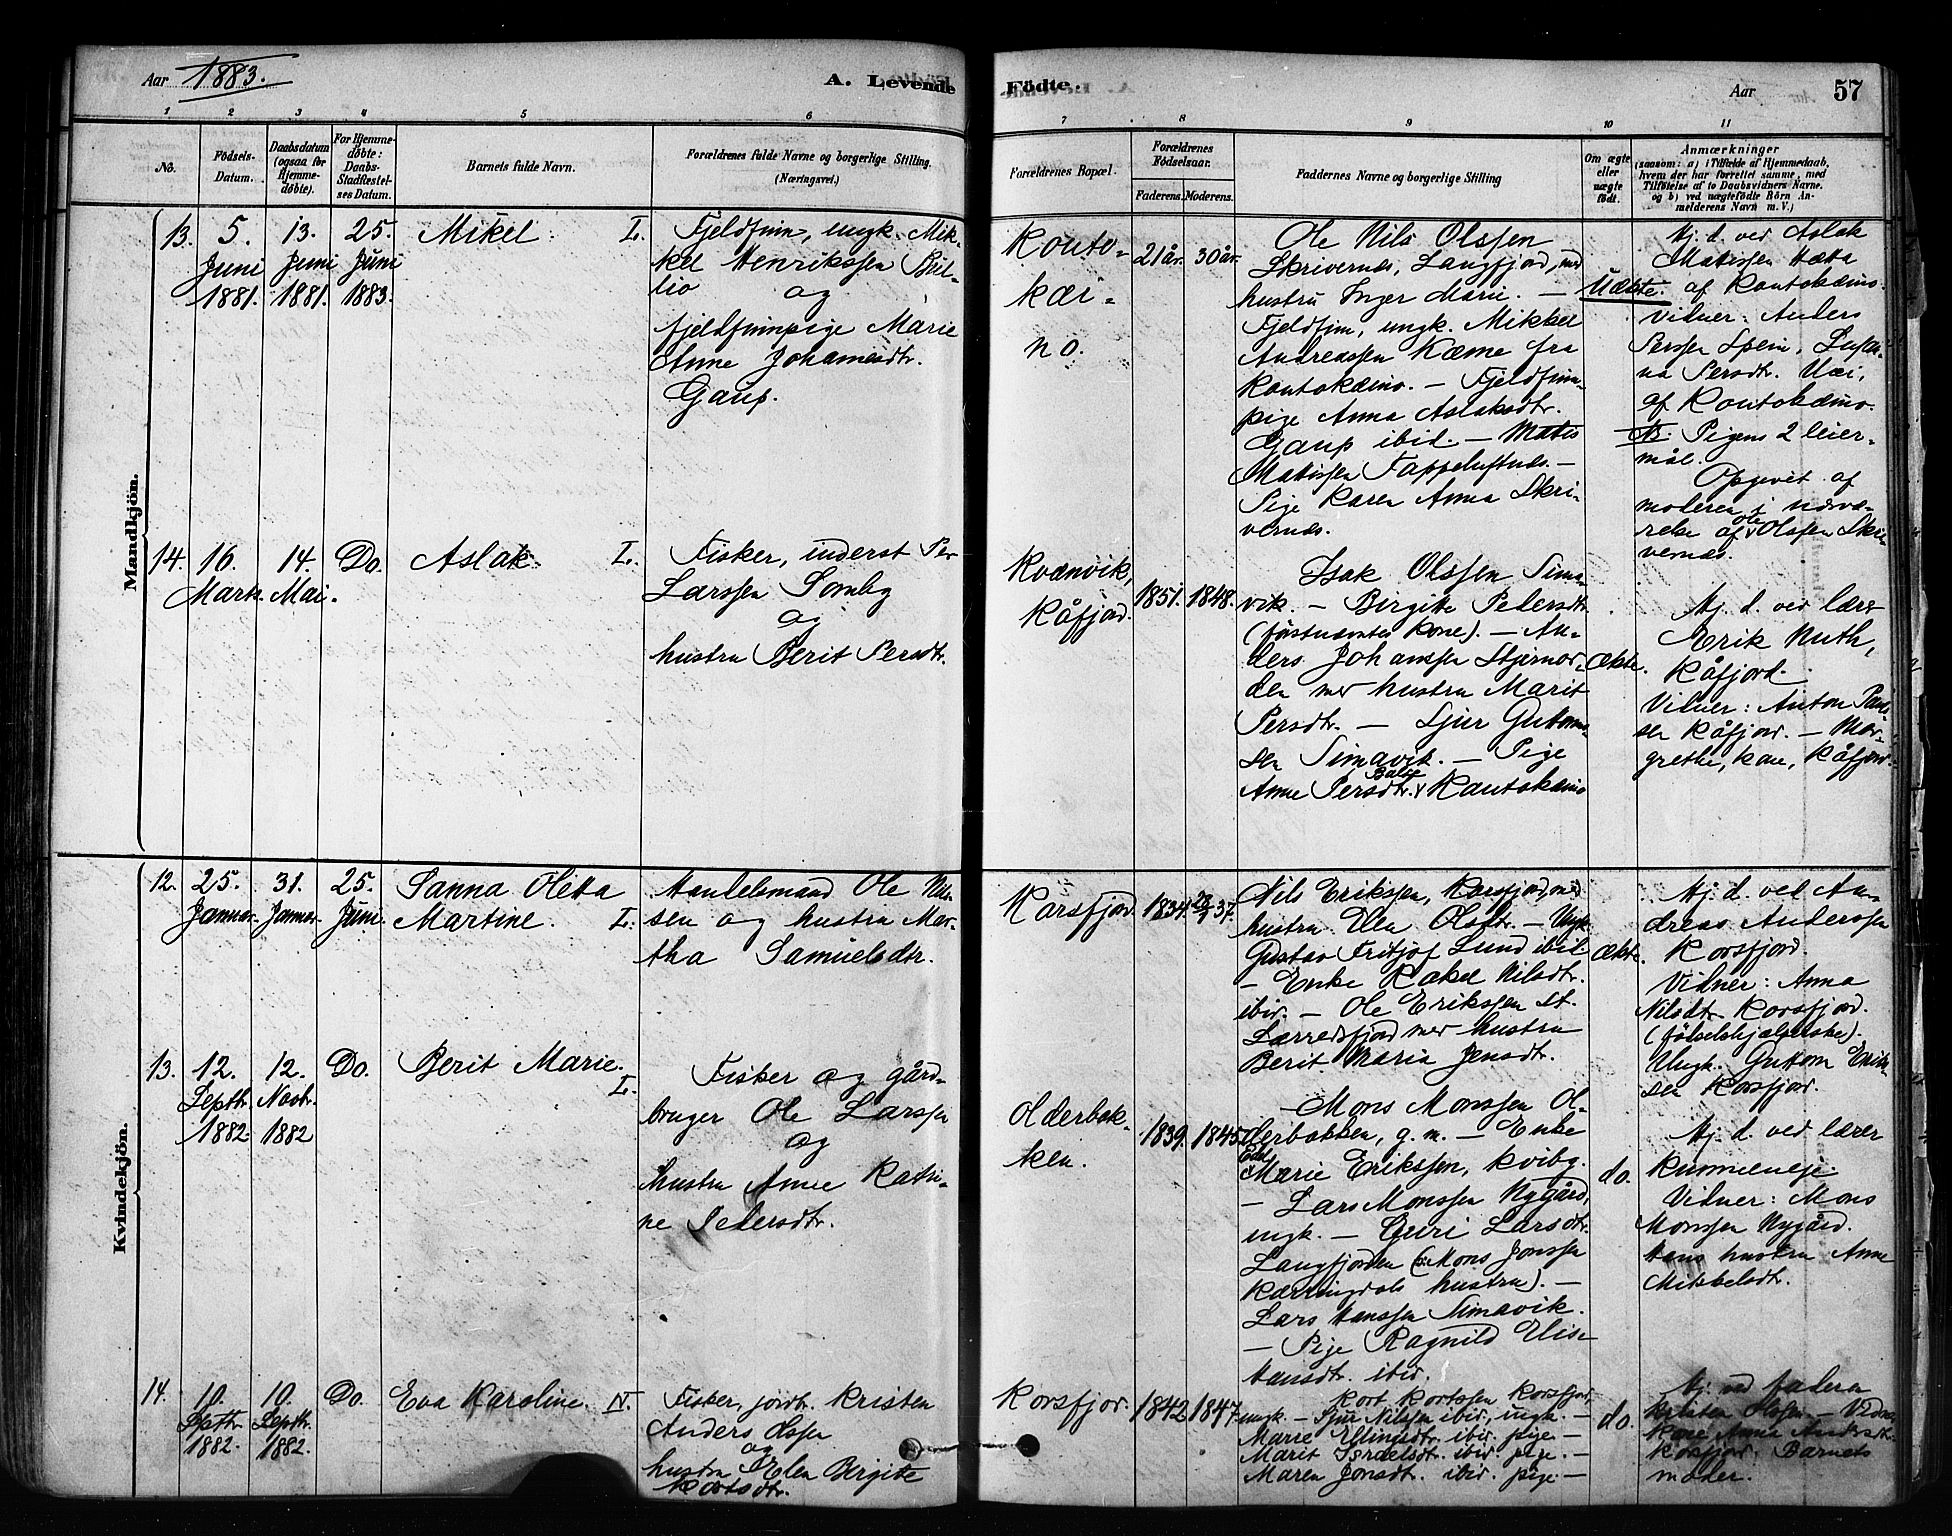 Aar 1883.
A. Levende
Födte.
Aar
57
1 2 3 4 5 6 7 8 9 10 11
No.
Födsels-
Datum.
Daabsdatum
(ogsaa for
Hjemme-
døbte).
For Hjemme-
døbte:
Daabs-
Stadfæstel-
ses Datum.
Barnets fulde Navn.
Forældrenes fulde Navne og borgerlige Stilling.
(Næringsvei.)
Forældrenes Bopæl.
Forældrenes
Födselsaar.
Faderens. Moderens.
Faddernes Navne og borgerlige Stilling
Om ægte
eller
uægte
født.
Anmærkninger
(saasom: a) i Tilfælde af Hjemmedaab,
hvem der har forrettet samme, med
Tilföielse af to Daabsvidners Navne.
og b) ved uægtefödte Börn An-
melderens Navn m. V.)
Mandkjön.
13.
5.
Juni
1881.
13.
Juni
1881.
25.
Juni
1883.
Mikel. L.
Fjeldfinn, ungk. Mik-
kel Henrikssen
og
fjeldfinnpige Marie
Anne Johannesdtr.
Gaup.
Kouto-
kæi-
no.
21 år. 30 år.
Ole Nils Olssen
Skrivernæs, Langfjord, med
hustru Inger Marie. —
Fjeldfin, ungk. Mikkel
Andreassen Kæme fra
Koutokæino. — Fjeldfinn-
pige Anna Aslaksdtr.
Gaup ibid. — Matis
Matissen Tappeluftnæs. —
Pige Karen Anna Skri-
vernæs.
Uækte.
Hj. d. ved Aslak
Matissen
af Koutokæino.
Vidner: Anders
Perssen Spein,
Persdtr. Uæi,
af Koutokæino.
NB. Pigens 2 leier-
mål.
Opgivet af
moderen i nærvæ-
relse af Ole Olssen Skri-
vernæs.
14.
16.
Marts.
14.
Mai.
Do.
Aslak. L.
Fisker, inderst Per
Larssen Somby
og
hustru Berit Persdtr.
Kvænvik,
Kåfjord.
1851. 1848.
Isak Olssen Sima-
vik. — Birgitte Pedersdtr.
(førstnævntes kone). — An-
ders Johanssen Stjernor-
den med hustru Marit
Persdtr. — Sjur Guttorm-
sen Simavik. — Pige
Anne Persdtr. Balse Kautokæino
Ækte.
Hj. d. ved lærer
Erik Nuth,
Kåfjord.
Vidner: Anton Paul-
sen Kåfjord. — Mar-
grethe, kone, Kåfjord.
Kvindekjön.
12.
25.
Januar.
31.
Januar.
25.
Juni
Sanna Oletta
Martine. L.
Handelsmand Ole Nils-
sen og hustru Mar-
tha Samuelsdtr.
Korsfjord
1834. 28/9 37.
Nils Erikssen, Korsfjord, med
hustru Elen Olsdtr. — Ungk.
Gustav Fritjof Lund ibid.
— Enke Rakel Nilsdtr.
ibid. — Ole Erikssen St.
Lærredsfjord med hustru
Berit Maria Jensdtr.
Ækte.
Hj. d. ved An-
dreas Anderssen
Korsfjord.
Vidner: Anna
Nilsdtr. Korsfjord.
(fødselshjælperske).
Ungk. Guttorm Erik-
sen Korsfjord.
13.
12.
Septbr.
1882.
12.
Novbr.
1882
Do.
Berit Marie.
L.
Fisker og gård-
bruger Ole Larssen
og
hustru Anne Katri-
ne Pedersdtr.
Olderbak-
ken.
1839. 1845.
— Mons Monssen Ol-
derbakken, g. m. — Enke
Marie Erikssen, Kvibg.
— Lars Monssen Nygård,
ungk. — Guri Larsdtr.
Langfjorden (: Mons Jonssen
Kærringdals hustru). —
Lars Hanssen Simavik.
— Pige Ragnild Elise
Hansdtr. ibid.
do.
Hj. d. ved lærer
Kummeneje.
Vidner: Mons
Monssen Nygård.
Hans hustru Anne
Mikkelsdtr.
14.
10.
Septbr.
1882.
10.
Septbr.
1882.
Do.
Eva Karoline. N.
Fisker, jordbr. Kristen
Anders Olssen
og
hustru Elen Birgitte
Kortsdtr.
Korsfjord.
1842 1847.
Kort Kortssen Korsfjord,
ungk. — Sjur Nilssen ibid., ungk. —
Marie Ellingsdtr. ibid. pige. —
Marit Israelsdtr. ibid. pige. —
Maren Jonsdtr. ibid. pige. —
do.
Hj. ved faderen
Kristen Olssen. — Vidner:
Kone Anna Andersdtr.
Korsfjord. Barnets
moder.